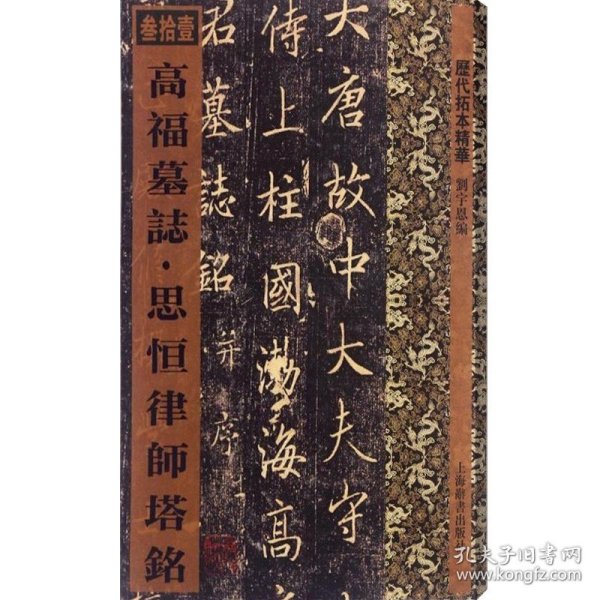 叁拾壹
高福墓誌·思恒律師塔銘
大唐故中大夫守
侍上柱國渤海高
君墓誌銘并序
歷代拓本精華
劉宇恩編
上海辭書出版社
孔夫子旧书网
www.kongfz.com